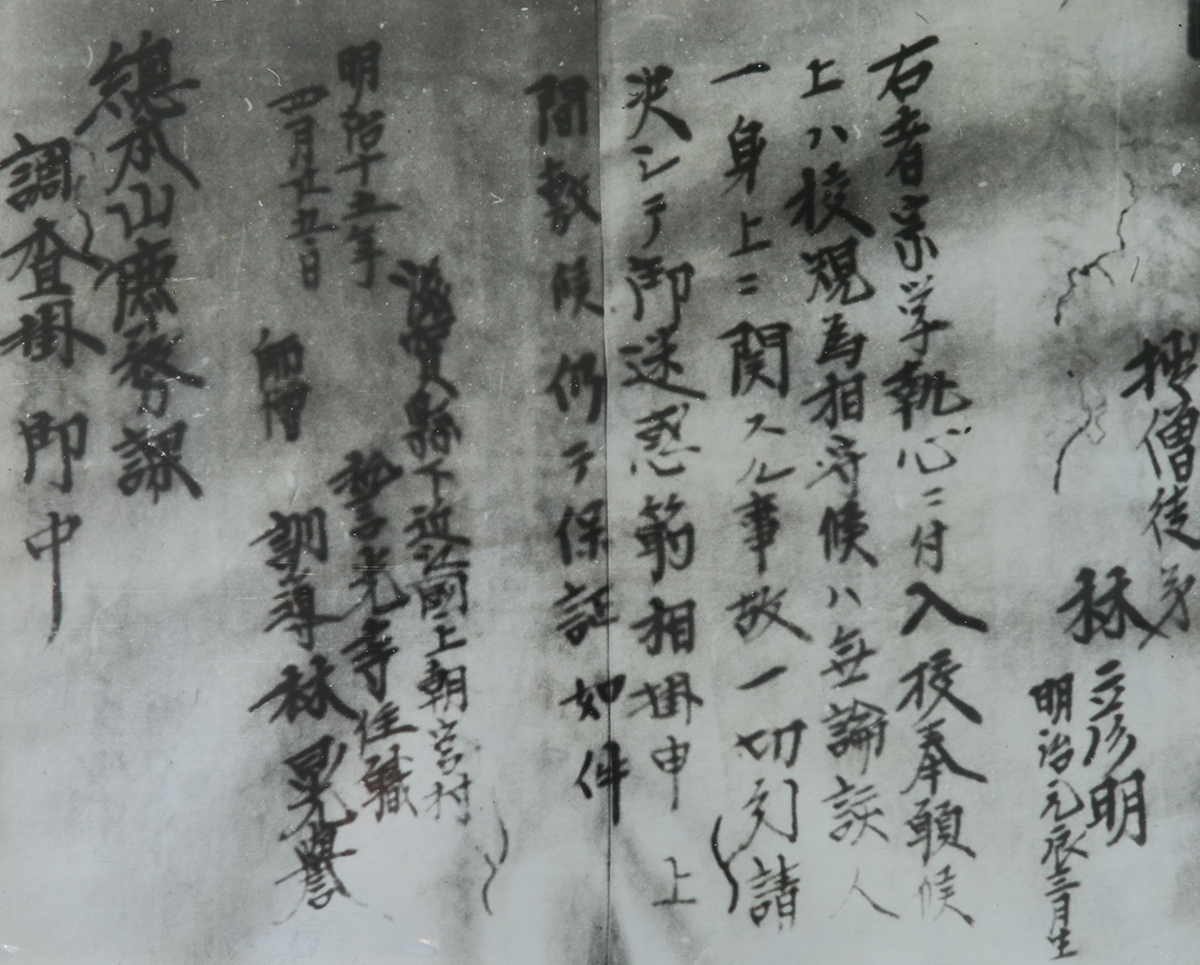 拙僧徒弟
林 立彦明
明治元辰三月生
右者宗学執心ニ付入校奉願候
上ハ校規為相守候ハ無論該人
一身上ニ関スル事故一切引請
決シテ御迷惑筋相掛申上
間敷候仍テ保証如件
滋賀縣下近江國上朝宮村
誓光寺住職
明治十五年
四月廿五日
師僧 訓導 林晃誉
總本山庶務課
調査掛 御中